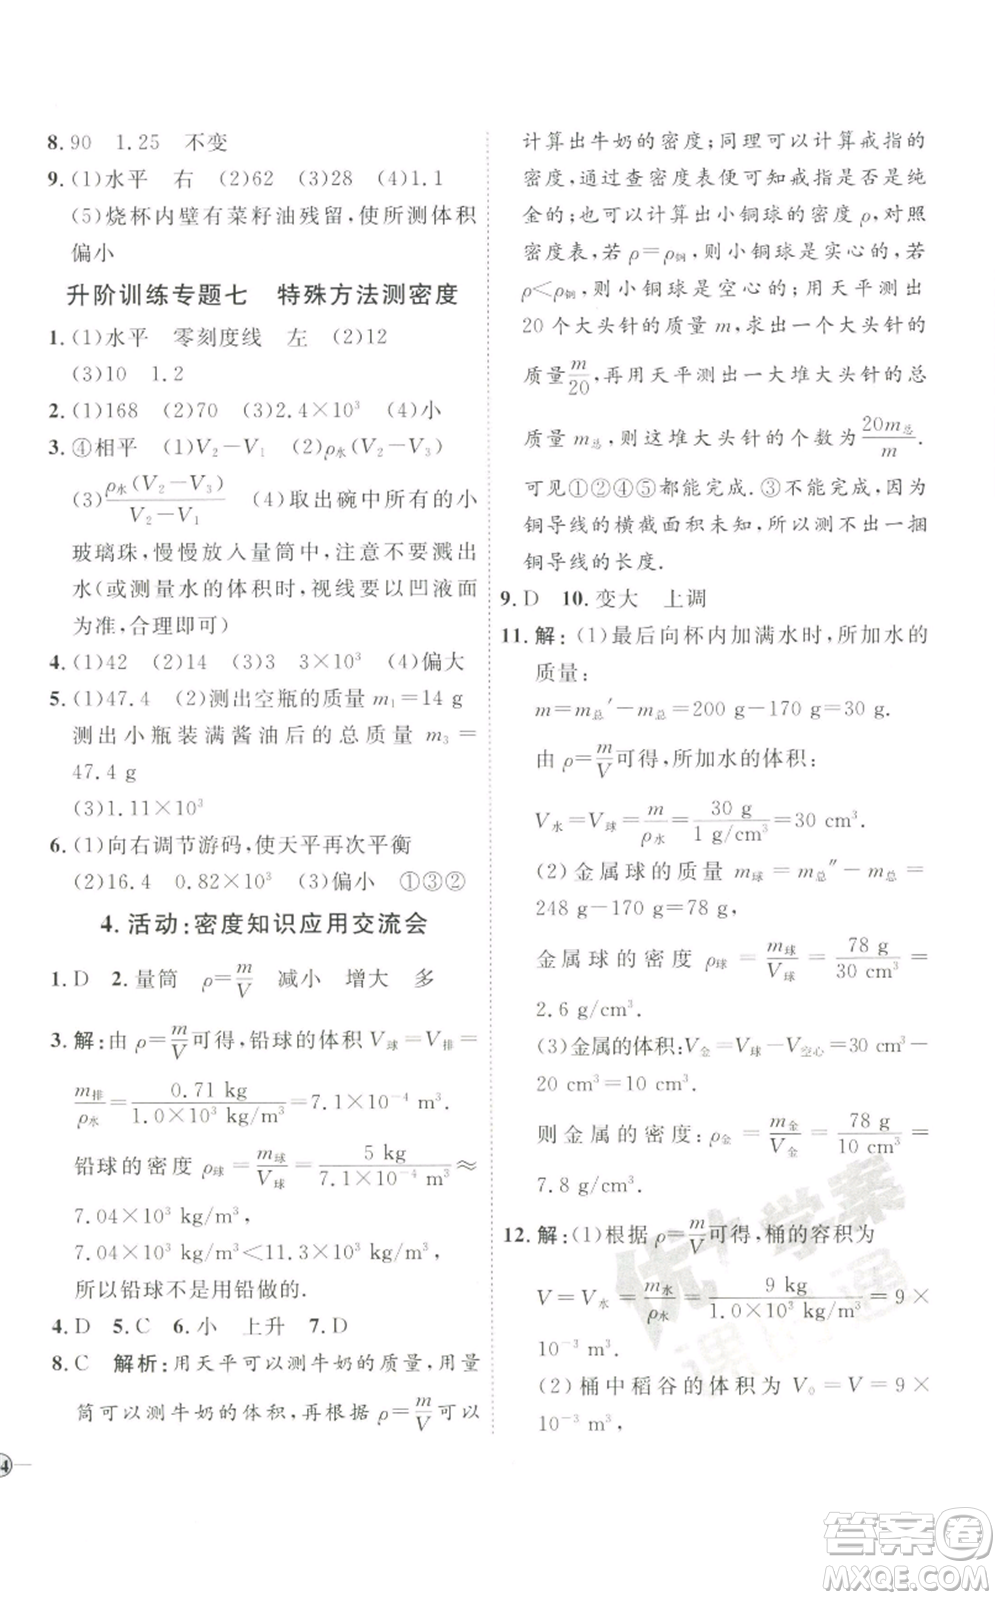 8. 90　1.25　不变
9. (1)水平　右　(2)62　(3)28　(4)1.1
(5)烧杯内壁有菜籽油残留,使所测体积
偏小
升阶训练专题七　特殊方法测密度
1. (1)水平　零刻度线　左　(2)12
(3)10　1.2
2. (1)168　(2)70　(3)2.4×10³　(4)小
3. ④相平　(1)V₂－V₁　(2)ρ水(V₂－V₃)
(3)ρ水(V₂－V₃)/(V₂－V₁)　(4)取出碗中所有的小
玻璃珠,慢慢放入量筒中,注意不要溅出
水(或测量水的体积时,视线要以凹液面
为准,合理即可)
4. (1)42　(2)14　(3)3　3×10³　(4)偏大
5. (1)47.4　(2)测出空瓶的质量 m₁＝14 g
测出小瓶装满酱油后的总质量 m₃＝
47.4 g
(3)1.11×10³
6. (1)向右调节游码,使天平再次平衡
(2)16.4　0.82×10³　(3)偏小　①③②
4. 活动:密度知识应用交流会
1. D　2. 量筒　ρ＝m/V　减小　增大　多
3. 解:由 ρ＝m/V可得,铅球的体积 V球＝V排＝
m排/ρ水＝0.71 kg/(1.0×10³ kg/m³)＝7.1×10⁻⁴ m³.
铅球的密度 ρ球＝m球/V球＝5 kg/(7.1×10⁻⁴ m³)≈
7.04×10³ kg/m³,
7.04×10³ kg/m³＜11.3×10³ kg/m³,
所以铅球不是用铅做的.
4. D　5. C　6. 小　上升　7. D
8. C　解析:用天平可以测牛奶的质量,用量
筒可以测牛奶的体积,再根据 ρ＝m/V可以
4
计算出牛奶的密度;同理可以计算戒指的
密度,通过查密度表便可知戒指是否是纯
金的;也可以计算出小铜球的密度 ρ,对照
密度表,若 ρ＝ρ铜,则小铜球是实心的,若
ρ＜ρ铜,则小铜球是空心的;用天平测出
20 个大头针的质量 m,求出一个大头针的
质量m/20,再用天平测出一大堆大头针的总
质量 m总,则这堆大头针的个数为20m总/m.
可见①②④⑤都能完成.③不能完成,因为
铜导线的横截面积未知,所以测不出一捆
铜导线的长度.
9. D　10. 变大　上调
11. 解:(1)最后向杯内加满水时,所加水的
质量:
m＝m总′－m总＝200 g－170 g＝30 g.
由 ρ＝m/V可得,所加水的体积:
V水＝V球＝m/ρ水＝30 g/(1 g/cm³)＝30 cm³.
(2)金属球的质量 m球＝m总″－m总＝
248 g－170 g＝78 g,
金属球的密度 ρ球＝m球/V球＝78 g/30 cm³＝
2.6 g/cm³.
(3)金属的体积:V金＝V球－V空心＝30 cm³－
20 cm³＝10 cm³,
则金属的密度:ρ金＝m金/V金＝78 g/10 cm³＝
7.8 g/cm³.
12. 解:(1)根据 ρ＝m/V可得,桶的容积为
V＝V水＝m水/ρ水＝9 kg/(1.0×10³ kg/m³)＝9×
10⁻³ m³.
(2)桶中稻谷的体积为 V₀＝V＝9×
10⁻³ m³,
答案圈
MXQE.COM